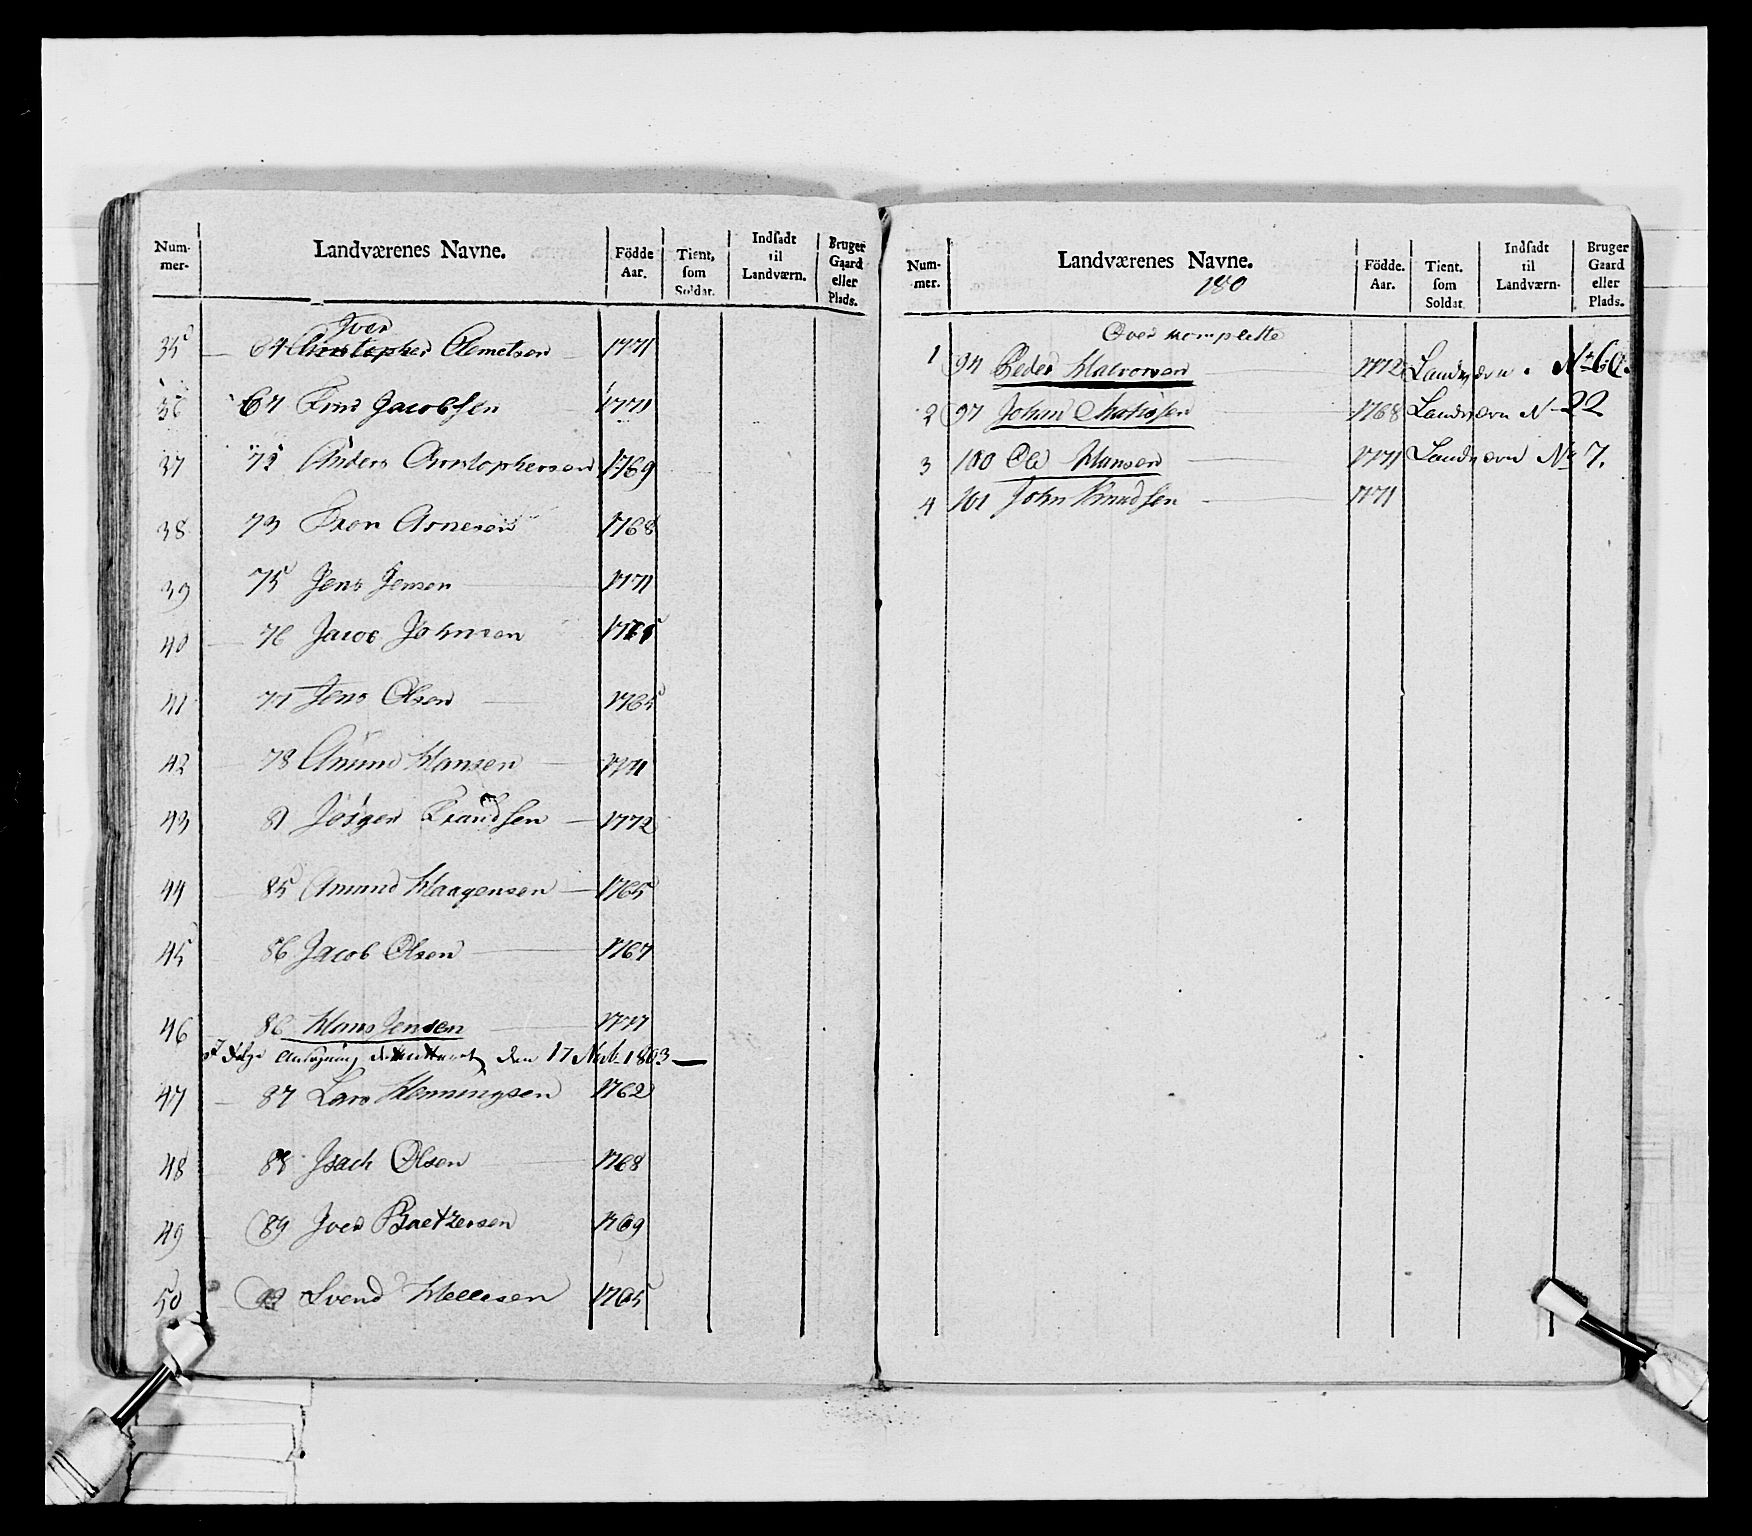 Num-
mer-
Landværenes Navne.
Födde
Aar.
Tient,
som
Soldat.
Indsadt
til
Landværn.
Bruger
Gaard
eller
Plads.
Iver
35 64 Christopher Clemetsen 1771
36 67 Jacobsen 1771
37 72 Anders Christophersen 1769
38 73 Arnesen 1768
39 75 Jens Jensen 1771
40 76 Jacob Johnsen
41 77 Jens Olsen 1765
42 78 Anund Hansen 1771
43 81 Jörgen 1772
44 85 Amund Haagensen 1765
45 86 Jacob Olsen 1767
46 86 Hans Jensen 1771
den 17 1803
47 87 Lars Henningsen 1762
48 88 Isach Olsen 1768
49 89 Iver 1769
50 Svend 1765
Num-
mer.
Landværenes Navne.
180
Födde.
Aar.
Tient.
som
Soldat
Indsadt
til
Landværn-
Bruger
Gaard
eller
Plads.
Over komplette
1 94 Peder Halvorsen 1772 Landværn. No 60.
2 97 Johan Mathisen 1768 Landværn N 22
3 100 Ole Hansen 1771 Landværn No 7.
4 101 John Knudsen 1771